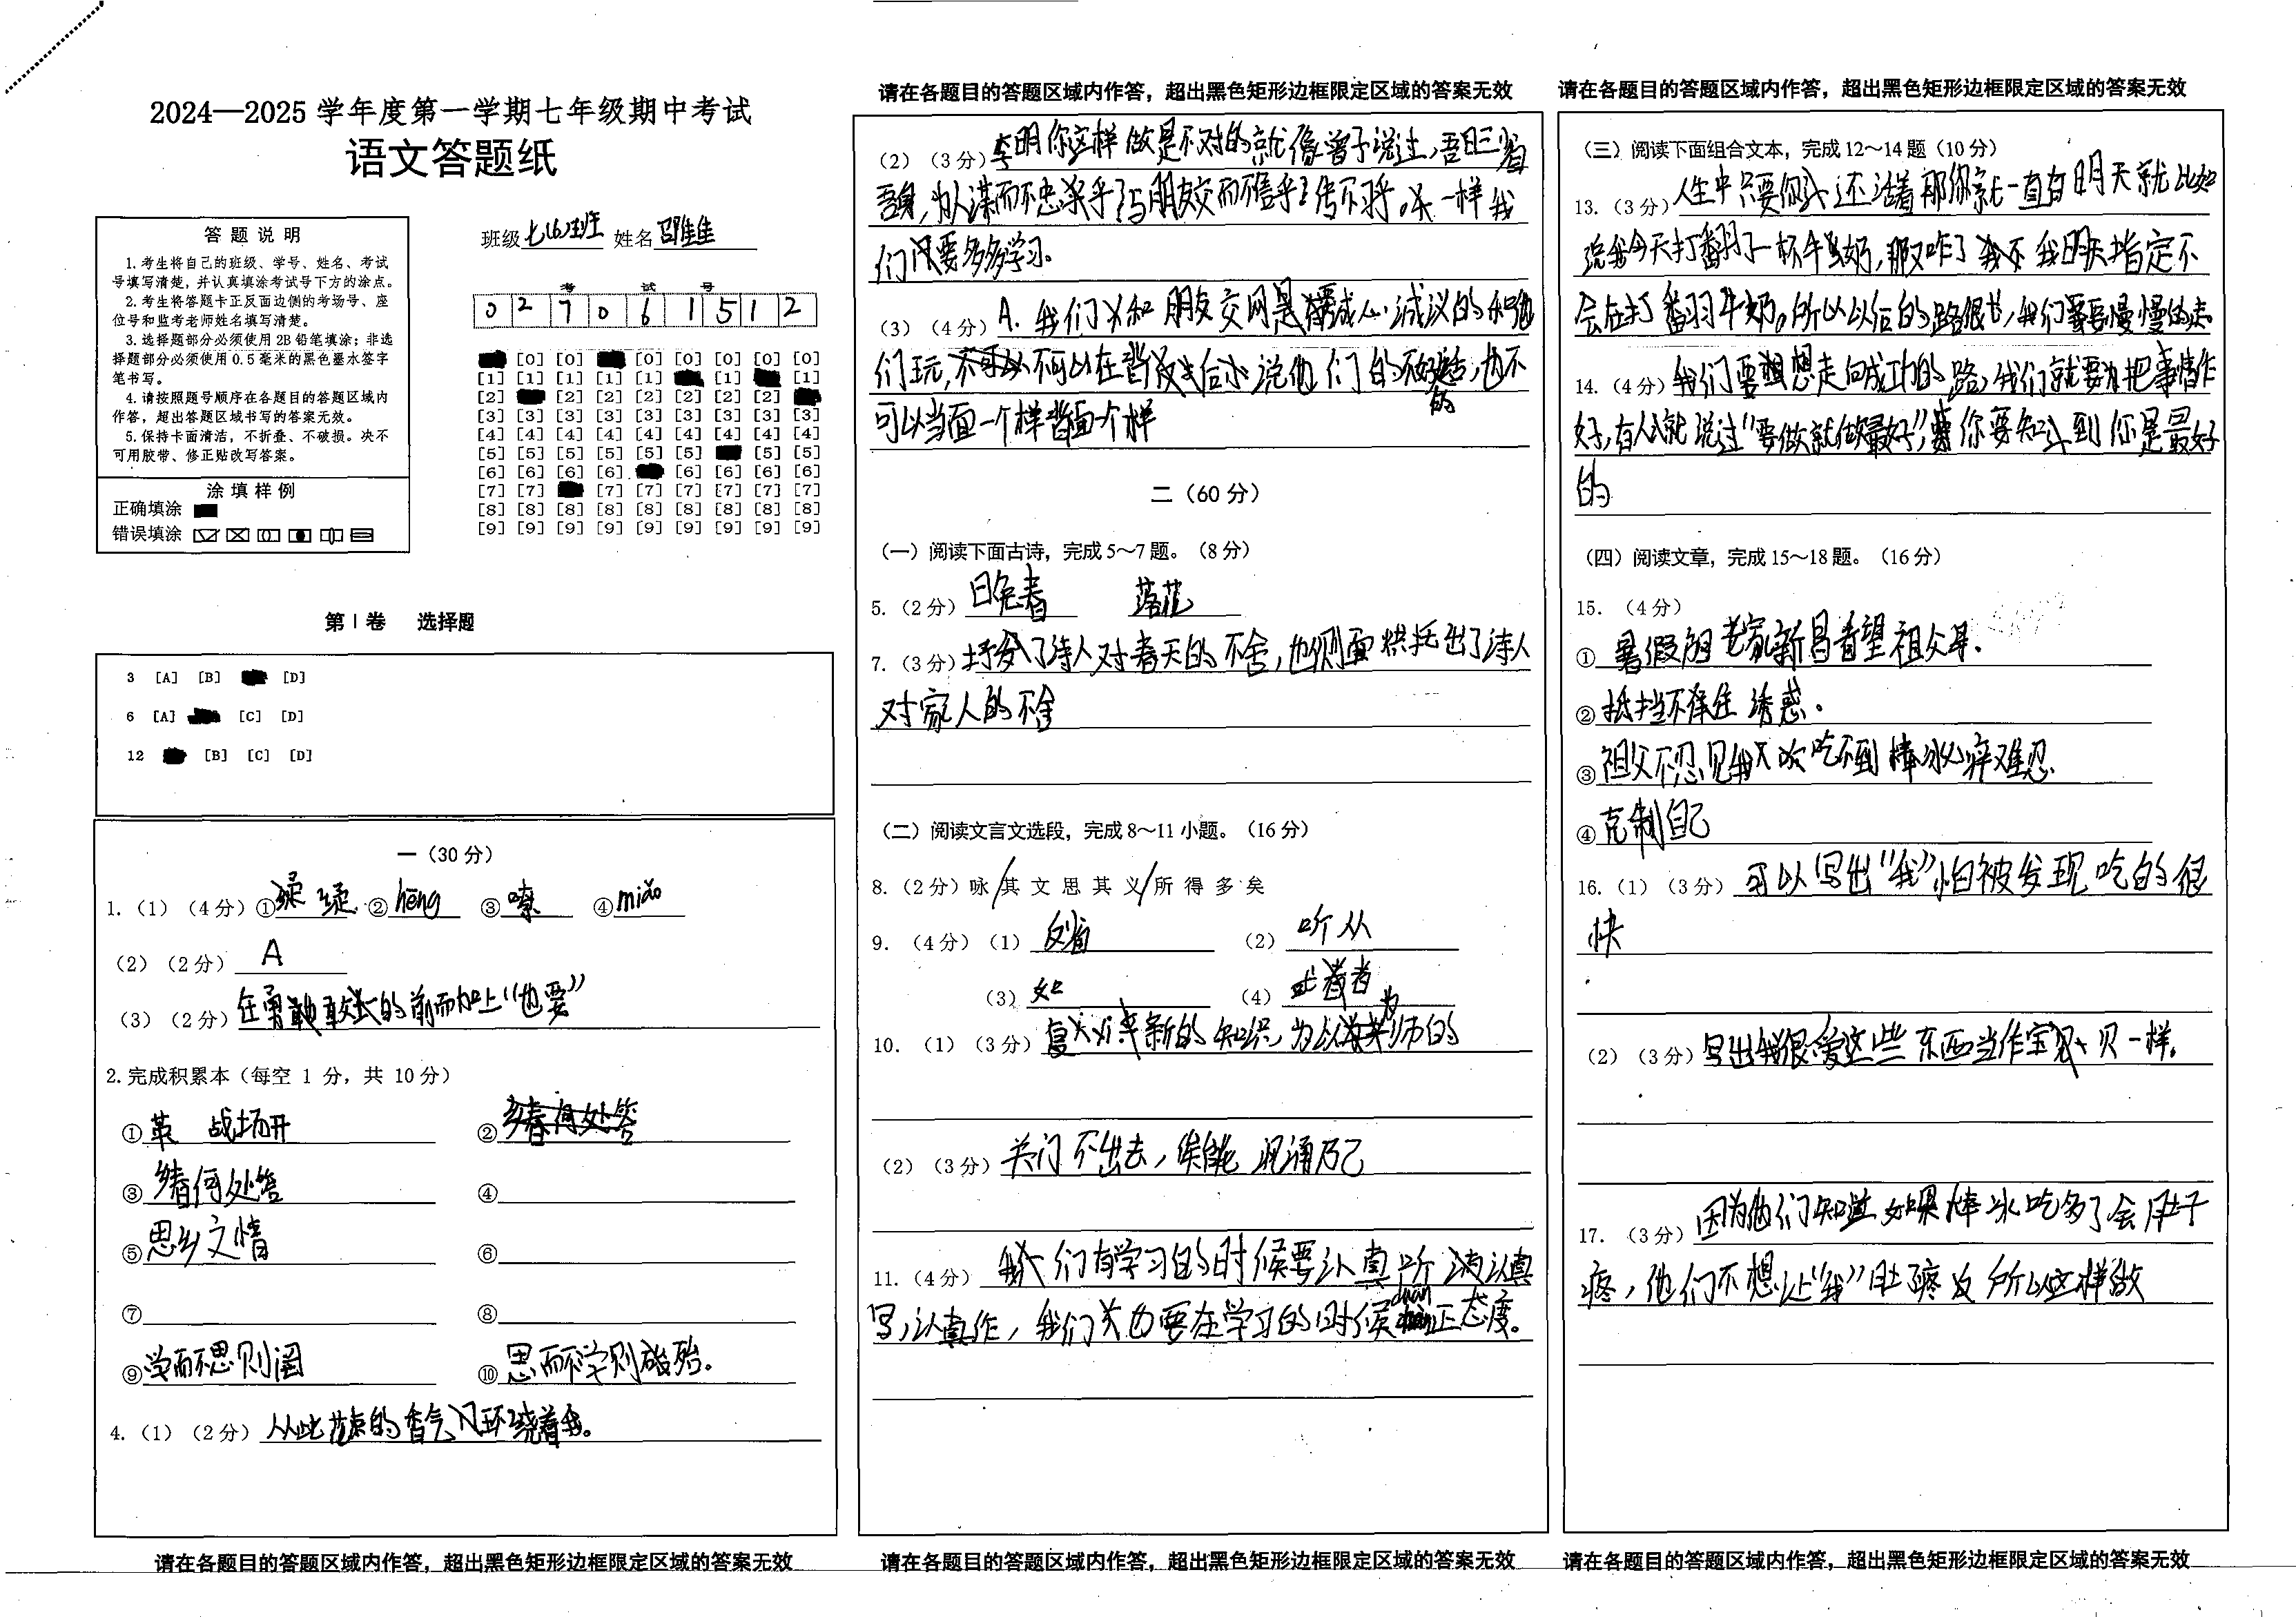 2024—2025 学年度第一学期七年级期中考试
语文答题纸
答 题 说 明
1. 考生将自己的班级、学号、姓名、考试
号填写清楚，并认真填涂考试号下方的涂点。
2. 考生将答题卡正反面边侧的考场号、座
位号和监考老师姓名填写清楚。
3. 选择题部分必须使用 2B 铅笔填涂；非选
择题部分必须使用 0.5 毫米的黑色墨水签字
笔书写。
4. 请按照题号顺序在各题目的答题区域内
作答，超出答题区域书写的答案无效。
5. 保持卡面清洁，不折叠、不破损。决不
可用胶带、修正贴改写答案。
涂 填 样 例
正确填涂
错误填涂
班级 七(6)班 姓名
考 试 号
0 2 7 0 6 1 5 1 2
[0] [0] [0] [0] [0] [0] [0]
[1] [1] [1] [1] [1] [1] [1]
[2] [2] [2] [2] [2] [2] [2]
[3] [3] [3] [3] [3] [3] [3] [3] [3]
[4] [4] [4] [4] [4] [4] [4] [4] [4]
[5] [5] [5] [5] [5] [5] [5] [5]
[6] [6] [6] [6] [6] [6] [6] [6]
[7] [7] [7] [7] [7] [7] [7] [7]
[8] [8] [8] [8] [8] [8] [8] [8] [8]
[9] [9] [9] [9] [9] [9] [9] [9] [9]
第 Ⅰ 卷 选择题
3 [A] [B] [D]
6 [A] [C] [D]
12 [B] [C] [D]
一（30 分）
1.（1）（4 分）① ② hēng ③ 嘹 ④ miǎo
（2）（2 分） A
（3）（2 分）在勇敢 的前面加上“也要”
2. 完成积累本（每空 1 分，共 10 分）
① 战场开 ②
③ 乡书何处答 ④
⑤ 思乡之情 ⑥
⑦ ⑧
⑨ 学而不思则罔 ⑩ 思而不学则 殆。
4.（1）（2 分） 从此 的香气 环绕着我。
请在各题目的答题区域内作答，超出黑色矩形边框限定区域的答案无效
请在各题目的答题区域内作答，超出黑色矩形边框限定区域的答案无效
（2）（3 分）李明你这样做是不对的就像曾子说过，吾日三省
吾身，为人谋而不忠乎 与朋友交而不信乎？传不习乎。 一样我
们 要多多学习。
（3）（4 分） A. 我们 和朋友交 是 诚心 诚议的和他
们玩，不可以在背 后 说他们的 话，也不
可以当面一个样背面一个样
二（60 分）
（一）阅读下面古诗，完成 5～7 题。（8 分）
5.（2 分） 落花
7.（3 分）抒发了诗人对春天的不舍，也侧面烘托出了诗人
对家人的不舍
（二）阅读文言文选段，完成 8～11 小题。（16 分）
8.（2 分）咏/其 文 思 其 义/所 得 多 矣
9.（4 分）（1） 反省 （2） 听从
（3） 如 （4）
10.（1）（3 分） 复习 新的知识，
（2）（3 分） 关门不出去， 诵乃己
11.（4分） 我们有学习的时候要认真听 认真
写，认真作，我们 也要在学习的时候 duān 正态度。
请在各题目的答题区域内作答，超出黑色矩形边框限定区域的答案无效
请在各题目的答题区域内作答，超出黑色矩形边框限定区域的答案无效
（三）阅读下面组合文本，完成 12～14 题（10 分）
13.（3 分）人生中只要你 还活着那你就一直有明天就比如
说我今天打翻了一杯牛奶，那又咋了 我明天指定不
会在打翻牛奶。所以以后的路很长，我们要慢慢的走。
14.（4 分）我们要想走向成功的路，我们就要 把事情作
好，有人就说过“要做就做最好”， 你要知 到你是最好
的
（四）阅读文章，完成 15～18 题。（16 分）
15.（4 分）
① 暑假 老家新昌看望祖父母.
② 抵挡不住诱惑.
③ 祖父不忍见我 吃不到棒冰 难忍
④ 克制自己
16.（1）（3 分） 可以写出“我”怕被发现吃的很
快
（2）（3 分）写出我很爱这些东西当作宝 贝一样。
17.（3 分）因为他们知道如果棒冰吃多了会肚子
疼，他们不想让“我”肚 疼 所以这样做
请在各题目的答题区域内作答，超出黑色矩形边框限定区域的答案无效